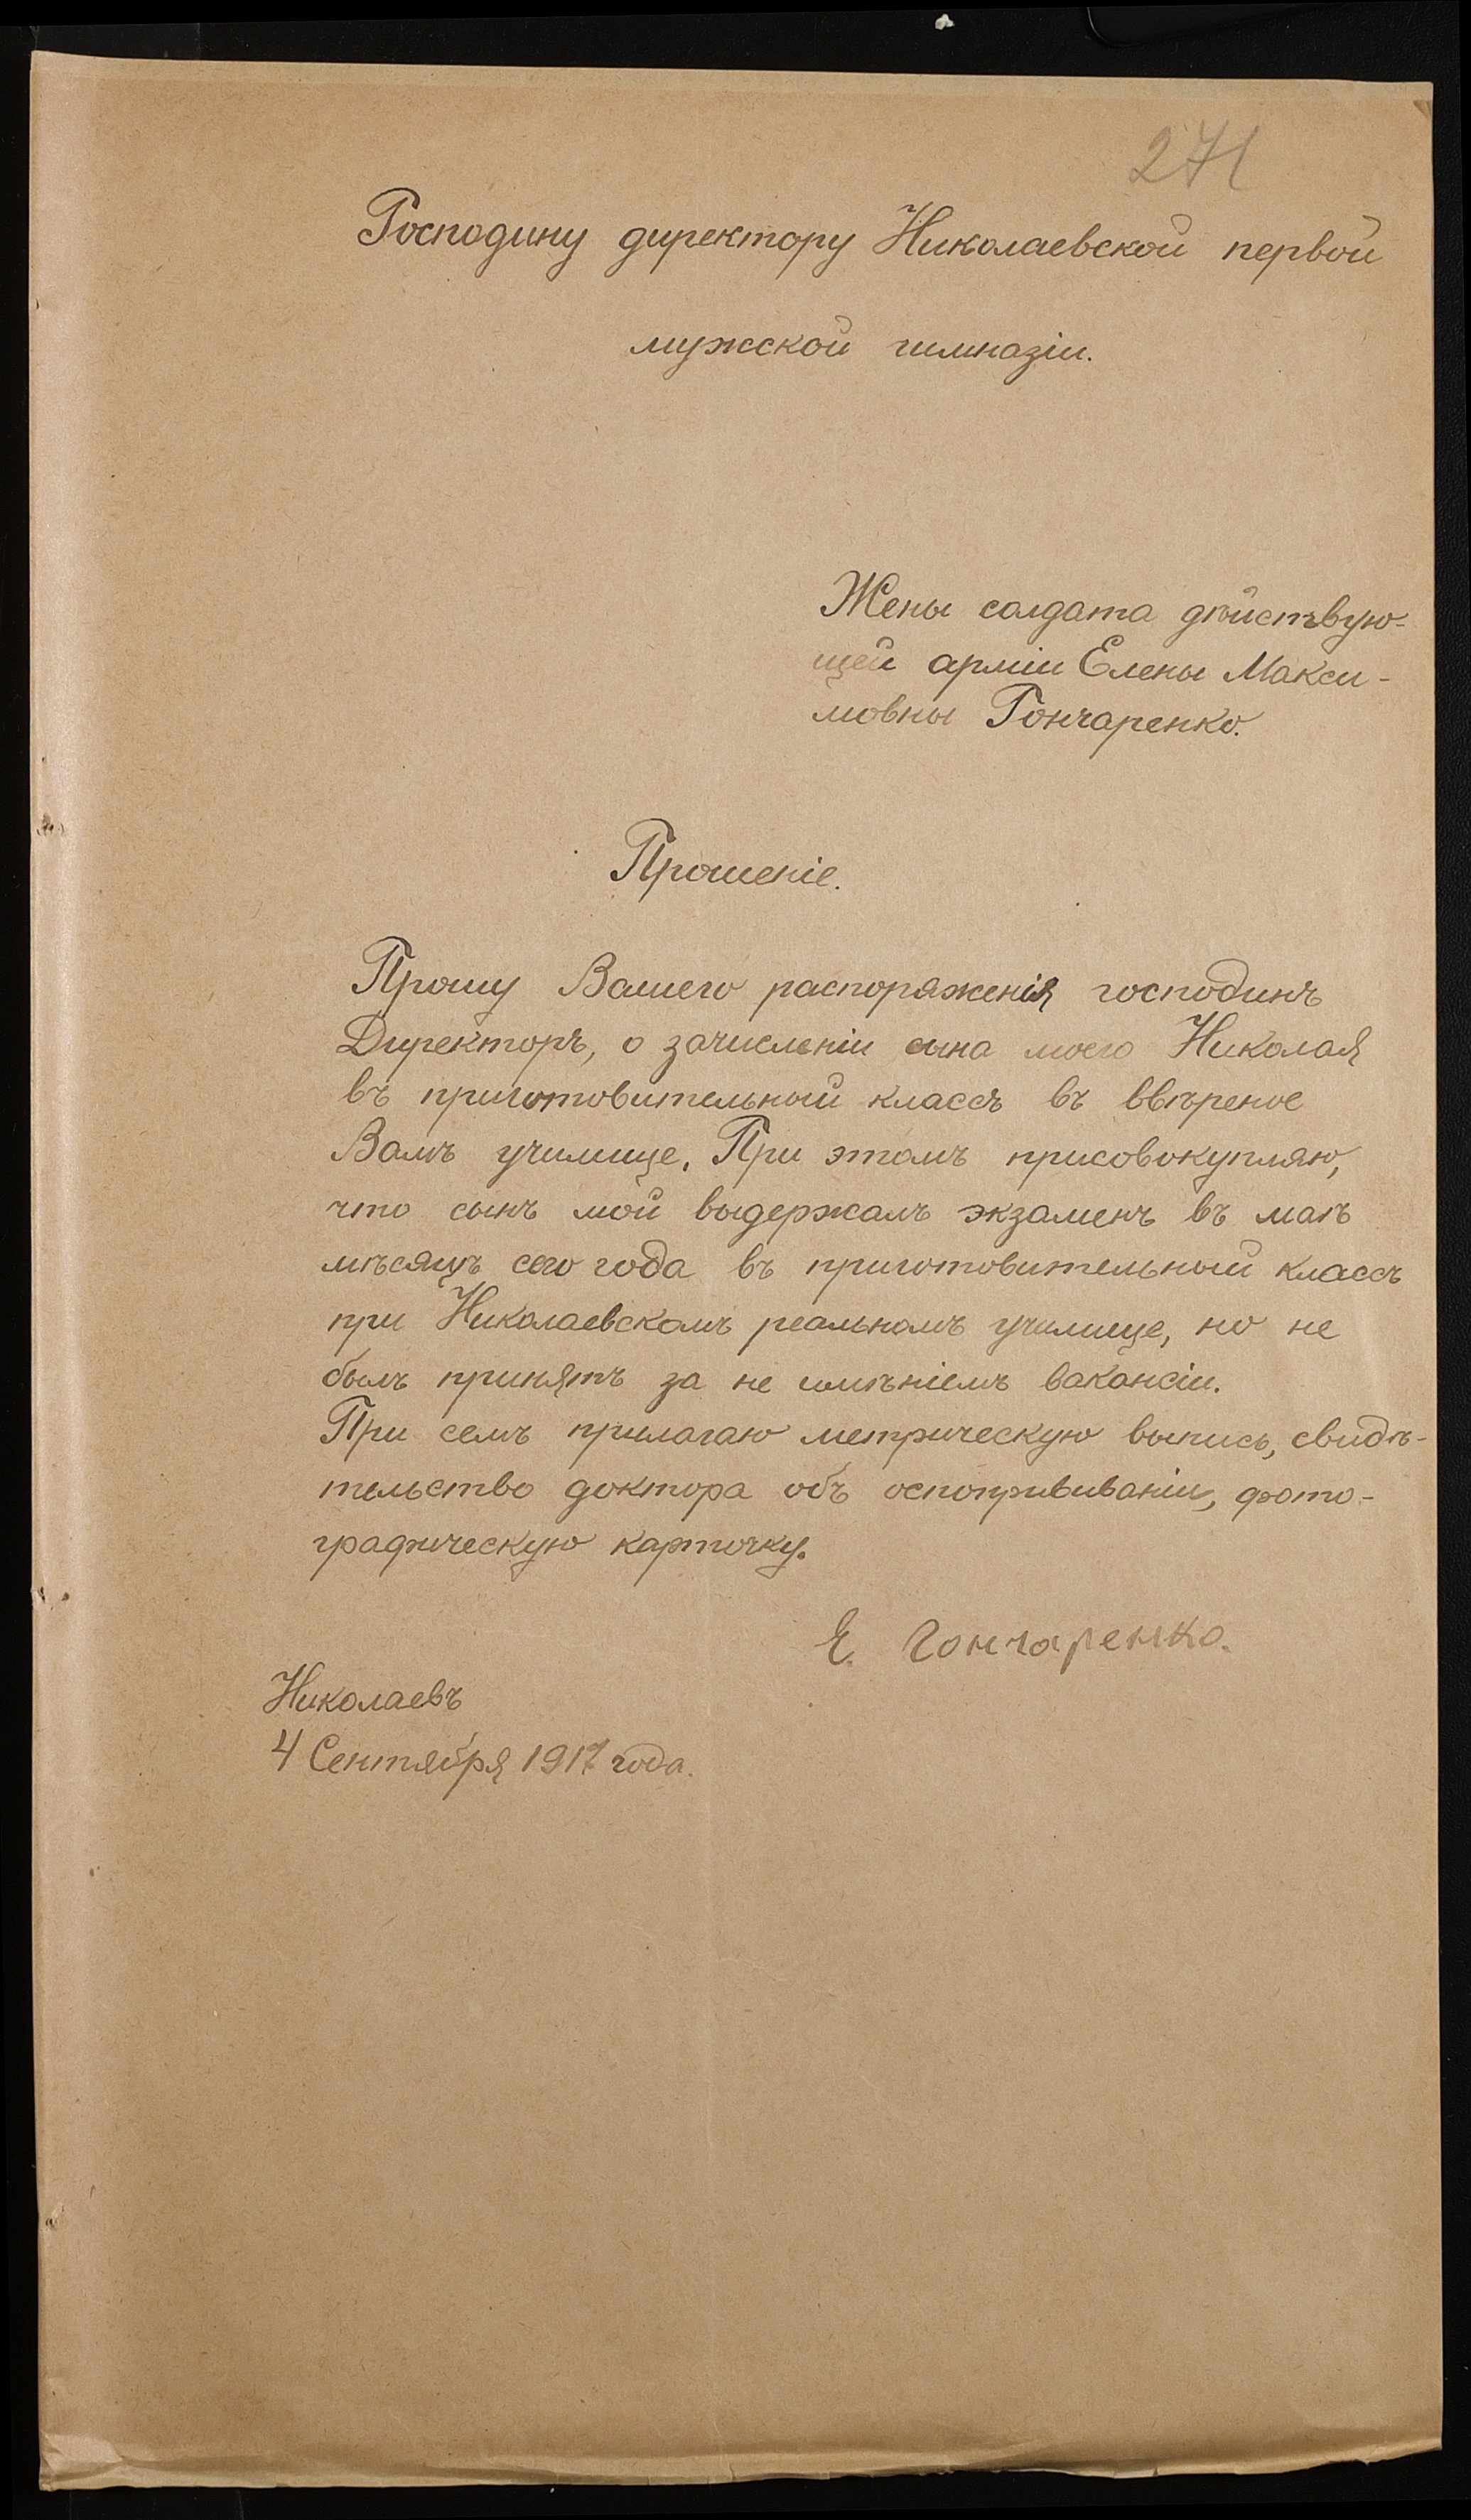 271
Господину директору Николаевской первой
мужской гимназіи.
Жены солдата дѣйствую-
щей арміи Елены Макси-
мовны Гончаренко.
Прошеніе.
Прошу Вашего распоряженія господинъ
Директоръ, о зачисленіи сына моего Николая
въ приготовительный классъ въ ввѣреное
Вамъ училище. При этомъ присовокупляю,
что сынъ мой выдержалъ экзаменъ въ маѣ
мѣсяцѣ сего года въ приготовительный классъ
при Николаевскомъ реальномъ училище, но не
былъ принятъ за не имѣніемъ вакансіи.
При семъ прилагаю метрическую выпись, свидѣ-
тельство доктора объ оспопрививаніи, фото-
графическую карточку.
Е. Гончаренко.
Николаевъ
4 Сентября 1917 года.